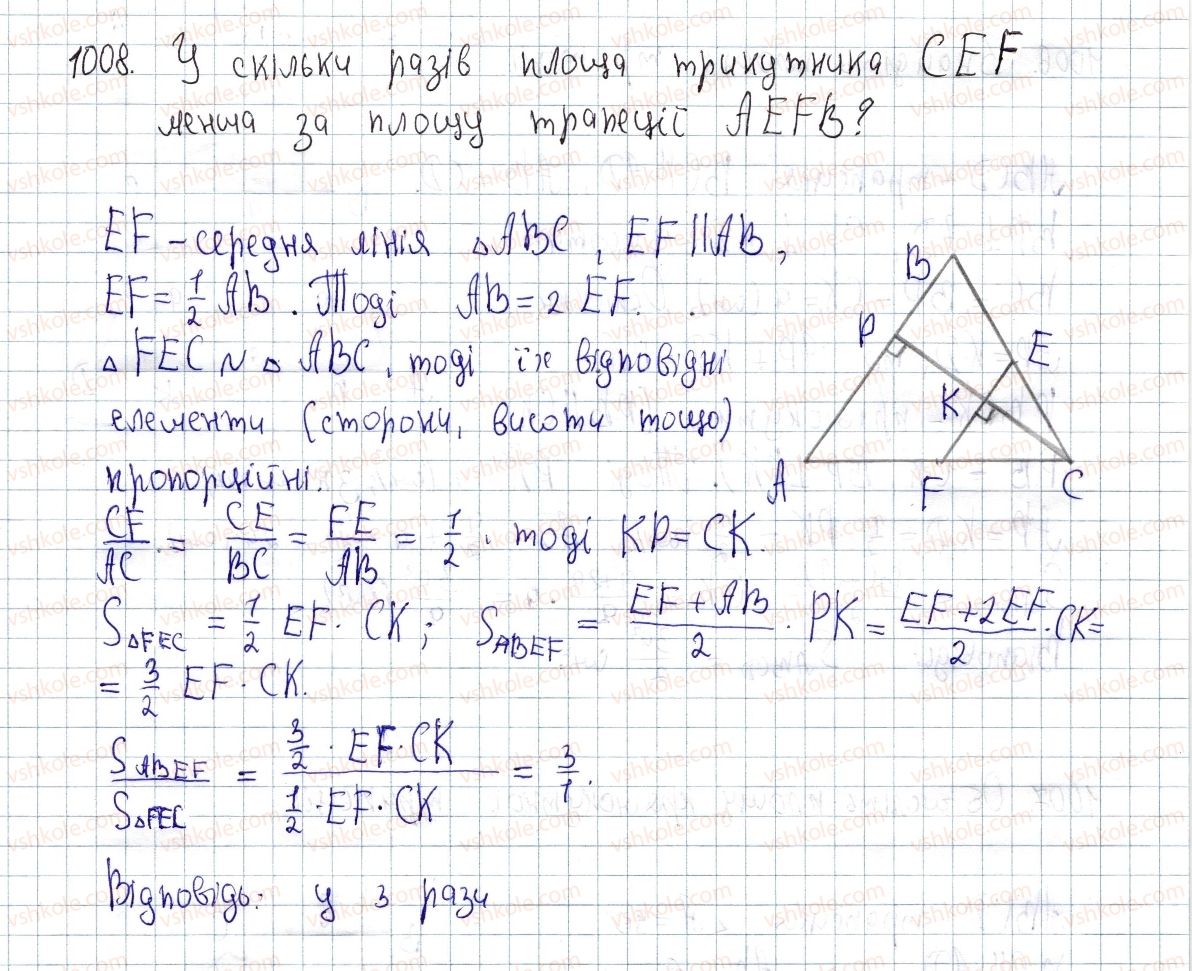 1008. У скільки разів площа трикутника CEF
менша за площу трапеції AEFB?
EF – середня лінія △ABC, EF||AB,
EF = 1/2 AB. Тоді AB = 2 EF.
△FEC ~ △ABC, тоді їх відповідні
елементи (сторони, висоти тощо)
пропорційні.
CF/AC = CE/BC = FE/AB = 1/2, тоді KP = CK.
S△FEC = 1/2 EF · CK; SABEF = (EF + AB)/2 · PK = (EF + 2EF)/2 · CK =
= 3/2 EF · CK.
SABEF/S△FEC = (3/2 · EF · CK)/(1/2 · EF · CK) = 3/1.
Відповідь: у 3 рази
B
P
E
K
A
F
C
vshkole.com